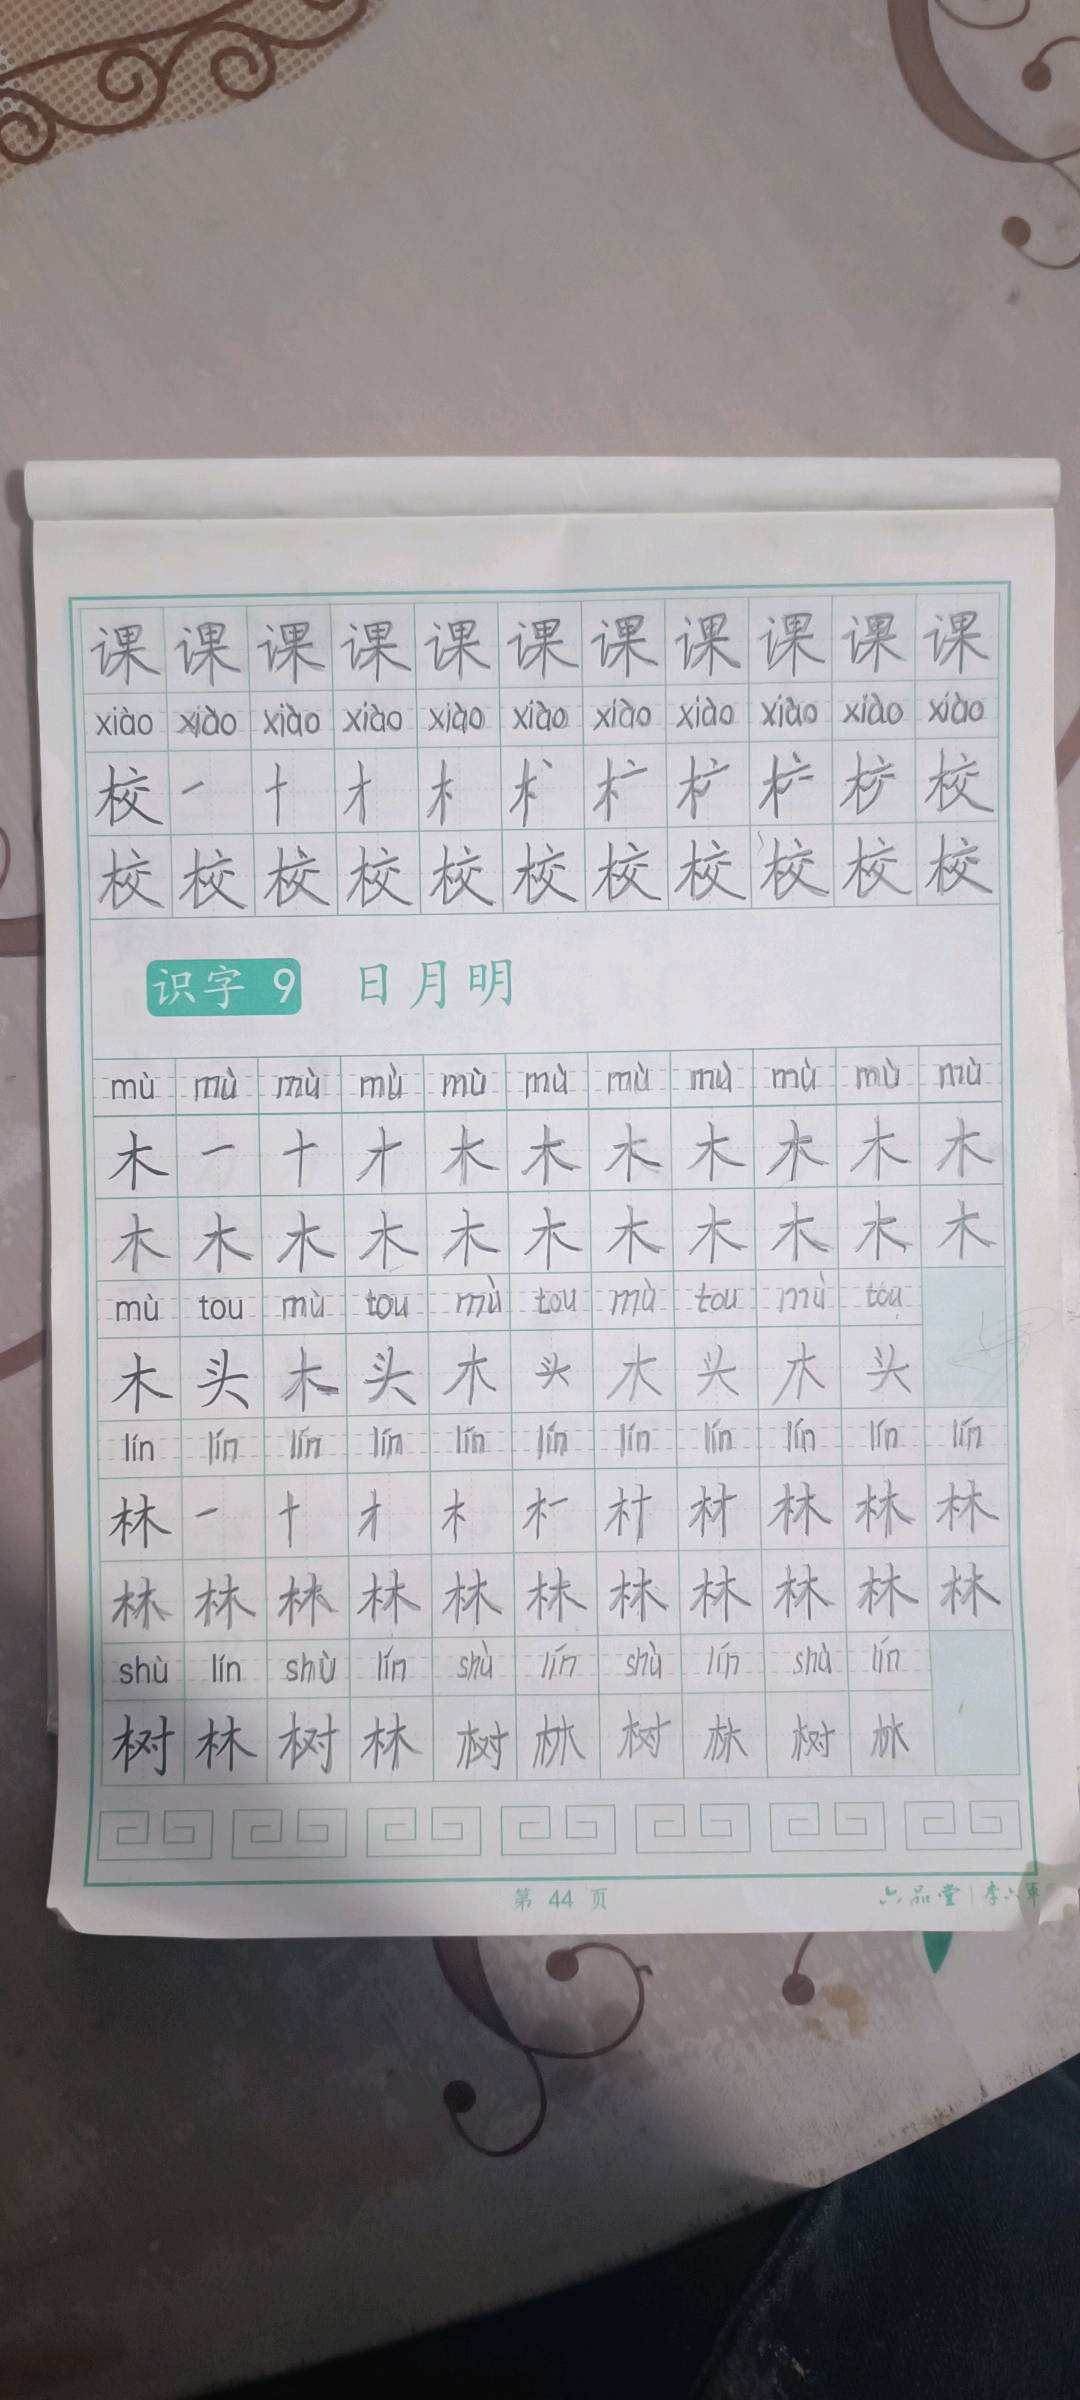 课 课 课 课 课 课 课 课 课 课 课
xiào xiào xiào xiào xiào xiào xiào xiào xiào xiào xiào
校 一 十 才 木 校
校 校 校 校 校 校 校 校 校 校 校
识字 9 日月明
mù mù mù mù mù mù mù mù mù mù mù
木 一 十 才 木 木 木 木 木 木 木
木 木 木 木 木 木 木 木 木 木 木
mù tou mù tou mù tou mù tou mù tou
木 头 木 头 木 头 木 头 木 头
lín lín lín lín lín lín lín lín lín lín lín
林 一 十 才 木 村 材 林 林 林
林 林 林 林 林 林 林 林 林 林 林
shù lín shù lín shù lín shù lín shù lín
树 林 树 林 树 林 树 林 树 林
第 44 页
六品堂 | 李六军